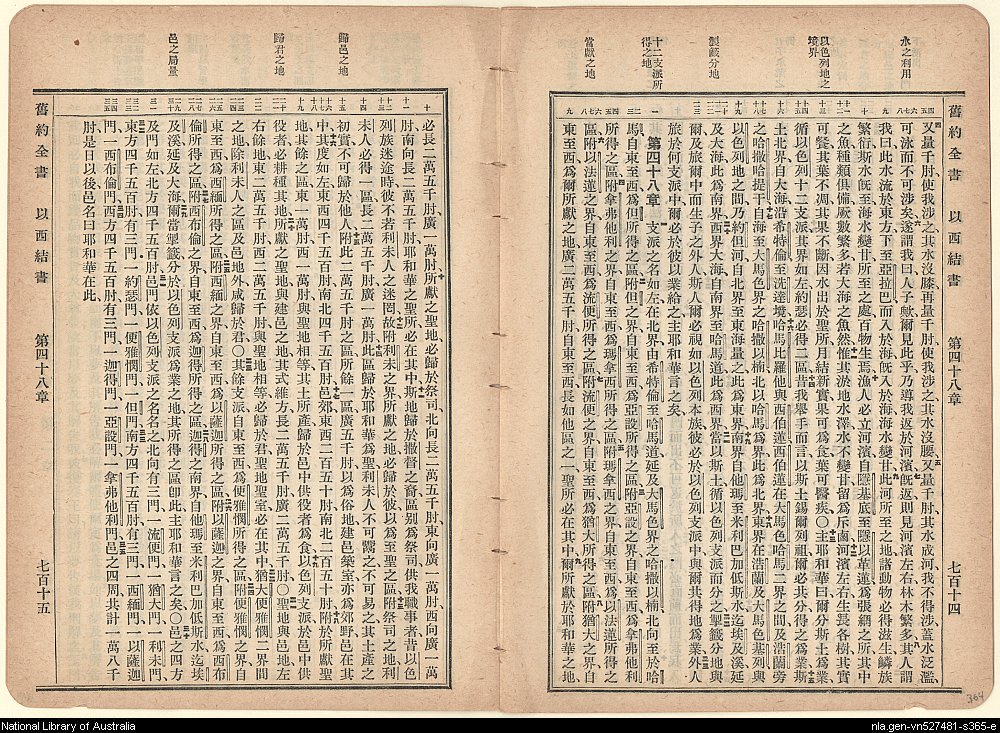 水之利用
以色列地之
境界
掣籤分地
十二支派所
得之地
當獻之地
舊約全書 以西結書 第四十八章 七百十四
又量千肘使我涉之其水沒膝再量千肘使我涉之其水沒腰又量千肘其水成河我不得涉蓋水泛濫
可泳而不可涉矣遂謂我曰人子歟爾見此乎乃導我返於河濱旣返則見河濱左右林木繁多其人謂
我曰此水流於東方下至亞拉巴而入於海旣入於海海水變甘此河所至之地諸動物必得滋生鱗族
繁衍斯水旣至海水變甘所至之處百物生焉漁人必立河濱自隱基底至隱以革蓮爲張網之所其中
之魚種類俱備厥數繁多若大海之魚然惟其淤地水澤水不變甘留爲斥鹵河濱左右生長各樹其實
可餐其葉不凋其果不斷因水出於聖所月結新實果可爲食葉可醫疾〇主耶和華曰爾分斯土爲業
循以色列十二支派其界如左約瑟必得二區昔我舉手而言以斯土錫爾列祖爾必共分得之爲業斯
土北界自大海沿希特倫至洗達境哈馬比羅他與西伯蓮在大馬色哈馬二界之間及浩蘭旁
之哈撒哈提于自海至大馬色界之哈撒以楠北以哈馬爲界此爲北界東界在浩蘭及大馬色基列與
以色列地之間乃約但河自北界至東海量之此爲東界南界自他瑪至米利巴加低斯水迄埃及溪延
及大海此爲南界西界大海自南界至哈馬道此爲西界當以斯土循以色列支派而分之掣籤分地與
爾及旅於爾中而生子之外人斯人爾必視如以色列本族彼必於以色列支派中與爾共得地爲業外人
旅於何支派中爾必於彼以業給之主耶和華言之矣
第四十八章 支派之名如左在北界由希特倫至哈馬道延及大馬色界之哈撒以楠北向至於哈
馬自東至西爲但所得之區附但之界自東至西爲亞設所得之區附亞設之界自東至西爲拿弗他利
所得之區附拿弗他利之界自東至西爲瑪拿西所得之區附瑪拿西之界自東至西爲以法蓮所得之
區附以法蓮之界自東至西爲流便所得之區附流便之界自東至西爲猶大所得之區附猶大之界自
東至西爲爾所獻之地廣二萬五千肘自東至西長如他區之一聖所必在其中爾所獻於耶和華之地
歸邑之地
歸君之地
邑之局量
必長二萬五千肘廣一萬肘所獻之聖地必歸於祭司北向長二萬五千肘東向廣一萬肘西向廣一萬
肘南向長二萬五千肘耶和華之聖所必在其中斯地歸於撒督之裔區別爲祭司供我職事者昔以色
列族迷途時彼不若利未人之迷罔故附利未之界所獻之地必歸於彼以爲至聖之區附祭司之地利
未人必得一區長二萬五千肘廣一萬肘此區歸於耶和華爲聖利未人不可鬻之不可易之其土產之
初實不可歸於他人附此二萬五千肘之區所餘一區廣五千肘以爲俗地建邑築室亦爲郊野邑在其
中其度如左東西四千五百肘南北四千五百肘邑郊東西二百五十肘南北二百五十肘附於所獻聖
地所餘之區東一萬肘西一萬肘與聖地相等其土所產歸於邑中供役者爲食以色列支派於邑中供
役者必耕種其地所獻之聖地與建邑之地其式維方長二萬五千肘廣二萬五千肘〇聖地與邑地左
右餘地東二萬五千肘西二萬五千肘與聖地相等必歸於君聖地聖室必在其中猶大便雅憫二界間
之地除利未人之區及邑地外咸歸於君〇其餘支派自東至西爲便雅憫所得之區附便雅憫之界自
東至西爲西緬所得之區附西緬之界自東至西爲以薩迦所得之區附以薩迦之界自東至西爲西布
倫所得之區附西布倫之界自東至西爲迦得所得之區迦得之南界自他瑪至米利巴加低斯水迄埃
及溪延及大海爾當掣籤分於以色列支派爲業之地其所得之區卽此主耶和華言之矣〇邑之四方
及門如左北方四千五百肘邑門依以色列支派之名名之北向有三門一流便門一猶大門一利未門
東方四千五百肘有三門一約瑟門一便雅憫門一但門南方四千五百肘有三門一西緬門一以薩迦
門一西布倫門西方四千五百肘有三門一迦得門一亞設門一拿弗他利門邑之四周共計一萬八千
肘是日以後邑名曰耶和華在此
舊約全書 以西結書 第四十八章 七百十五
364
National Library of Australia
nla.gen-vn527481-s365-e